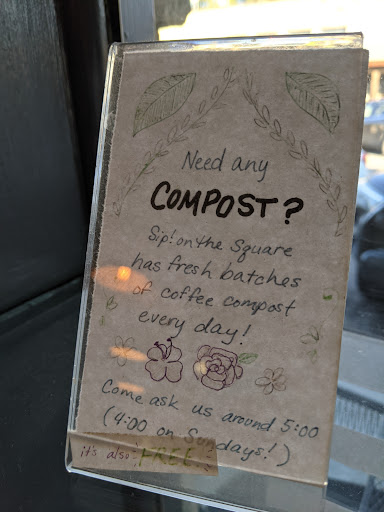 Need any
COMPOST?
Sip! on the Square
has fresh batches
of coffee compost
every day!
Come ask us around 5:00
(4:00 on Sundays!)
it's also FREE